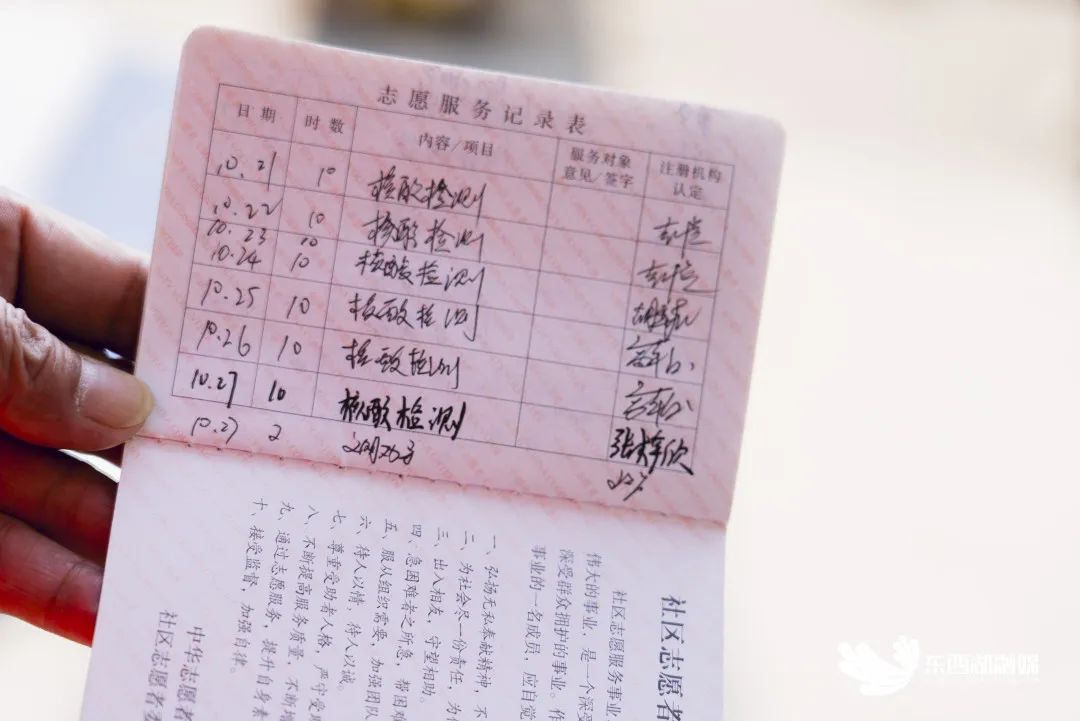 志愿服务记录表
日期 时数 内容/项目 服务对象意见/签字 注册机构认定
10.21 10 核酸检测
10.22 10 核酸检测
10.23 10 核酸检测
10.24 10 核酸检测
10.25 10 核酸检测
10.26 10 核酸检测
10.27 10 核酸检测 张梓欣
10.27 2
社区志愿者
社区志愿服务事业
伟大的事业，是一个深受
深受群众拥护的事业。作
事业的一名成员，应自觉
一、弘扬无私奉献精神，不
二、为社会尽一份责任，为
三、出入相友，守望相助。
四、急困难者之所急，帮困难
五、服从组织需要，加强团队
六、待人以情，待人以诚。
七、尊重受助者人格，严守受
八、不断提高服务质量，不断
九、通过志愿服务，提升自身素
十、接受监督，加强自律。
中华志愿者
社区志愿者委
东西湖融媒